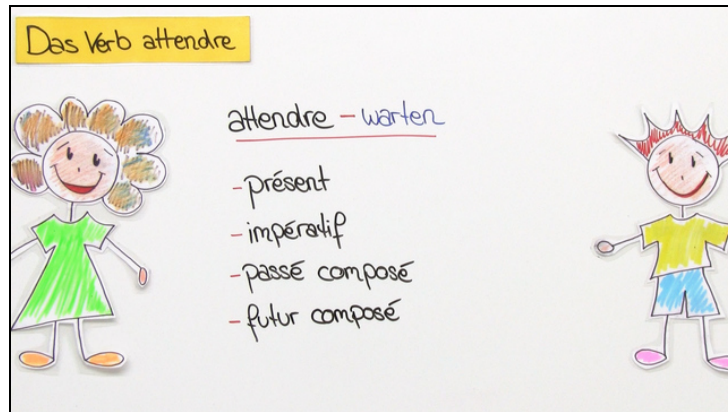 Das Verb attendre
attendre - warten
- présent
- impératif
- passé composé
- futur composé